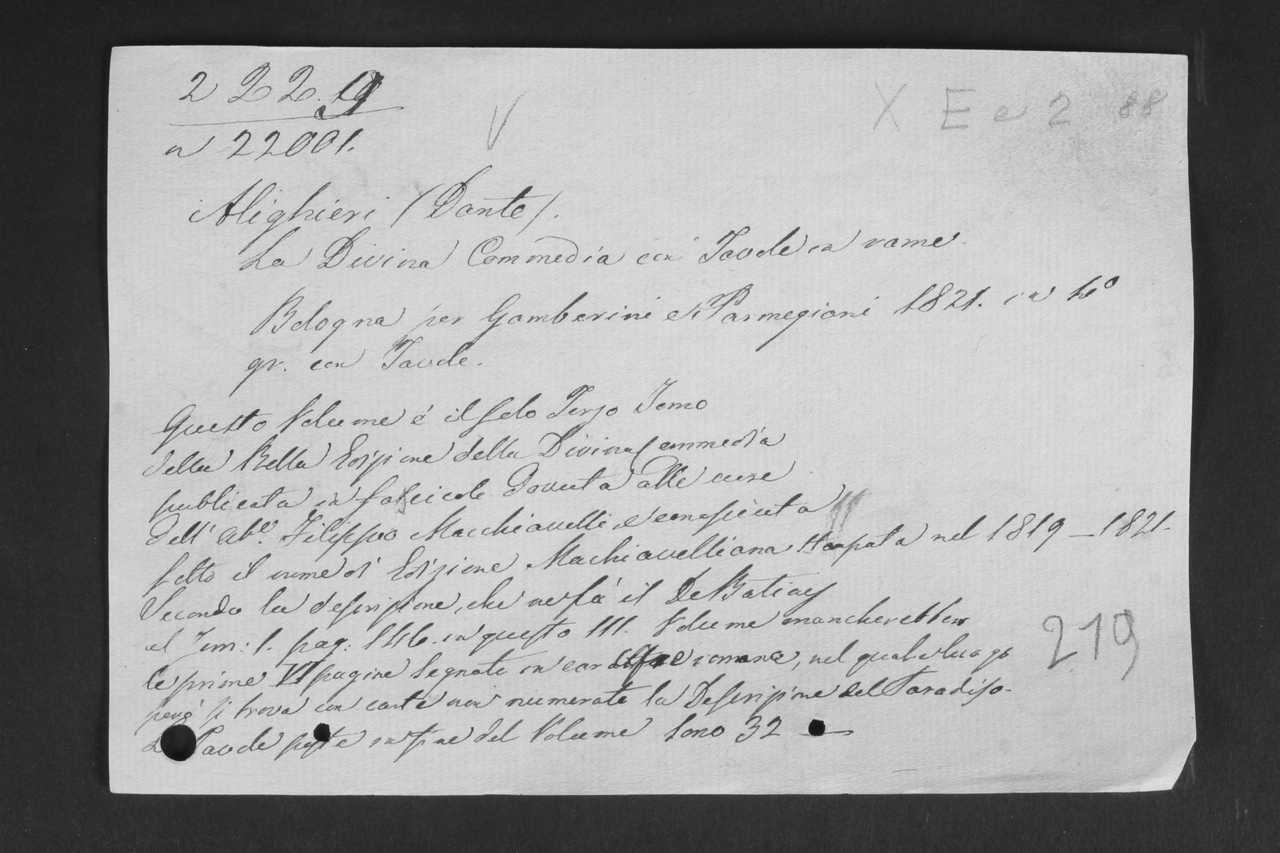 222.9
V
X E e 2 88
n 22001.
Alighieri (Dante).
La Divina Commedia con Tavole in rame.
Bologna per Gamberini e Parmegiani 1821. in 4º
gr. con Tavole.
Questo Volume è il solo Terzo Tomo
della Bella Edizione della Divina Commedia
publicata in fascicole dovuta alle cure
dell' Abe. Filippo Macchiavelli, e conosciuta
sotto il nome di Edizione Machiavelliana stampata nel 1819 – 1821.
Secondo la descrizione, che ne fà il De Batines
al Tom: 1. pag: 146. in questo III. Volume mancherebbero
le prime VI pagine segnate in romane, nel quale luogo
però si trova in carte non numerate la Descrizione del Paradiso.
Le Tavole poste in fine del Volume sono 32 —
219